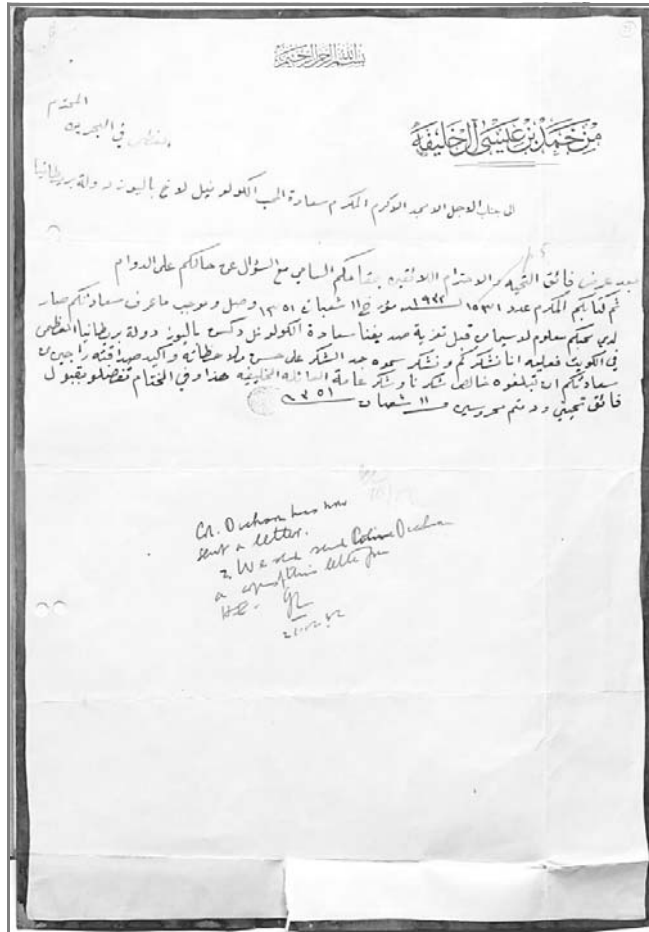 بسم الله الرحمن الرحيم
من حمد بن عيسى آل خليفة
الى جناب الاجل الامجد الاكرم المكرم سعادة المحب الكولونيل لاخ باليوز دولة بريطانيا
العظمى في البحرين
المحترم
بعد عرض فائق التحية والاحترام اللائقين بمقامكم السامي مع السؤال عن حالكم على الدوام
ثم كتابكم المكرم عدد ١٥٣١ ١٩٣٢ مؤرخ ١١ شعبان ١٣٥١ وصل وموجب ما عرف سعادتكم صار
لدى محبكم معلوم لا سيما من قبل تعزية صديقنا سعادة الكولونل دكسن باليوز دولة بريطانيا العظمى
في الكويت فعليه انا نشكركم ونشكر سموه جد الشكر على حسن ملاحظاته واكيد صداقته راجين من
سعادتكم ان تبلغوه خالص شكرنا وشكر عامة العائلة الخليفية هذا وفي الختام تفضلو بقبول
فائق تحيتي ودمتم محروسين ١١ شعبان ١٣٥١
Col. Dickson has now
sent a letter.
2. We shd send Colonel Dickson
a copy of this letter from
H.E.
21.12.32